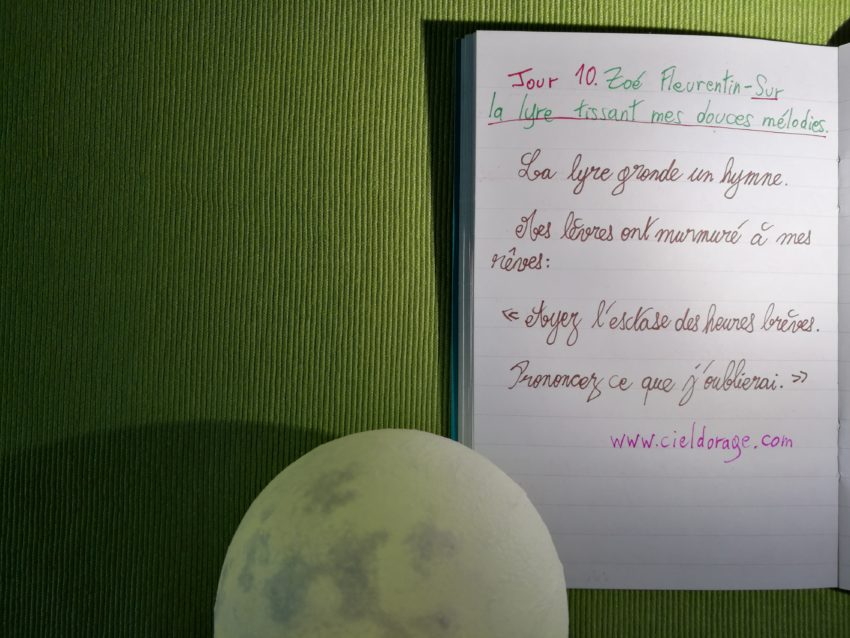 Jour 10. Zoé Fleurentin-Sur
la lyre tissant mes douces mélodies.
La lyre gronde un hymne.
Mes lèvres ont murmuré à mes
rêves:
« étoyez l'esctase des heures brèves.
Prononcez ce que j'oublierai. »
www.cieldorage.com